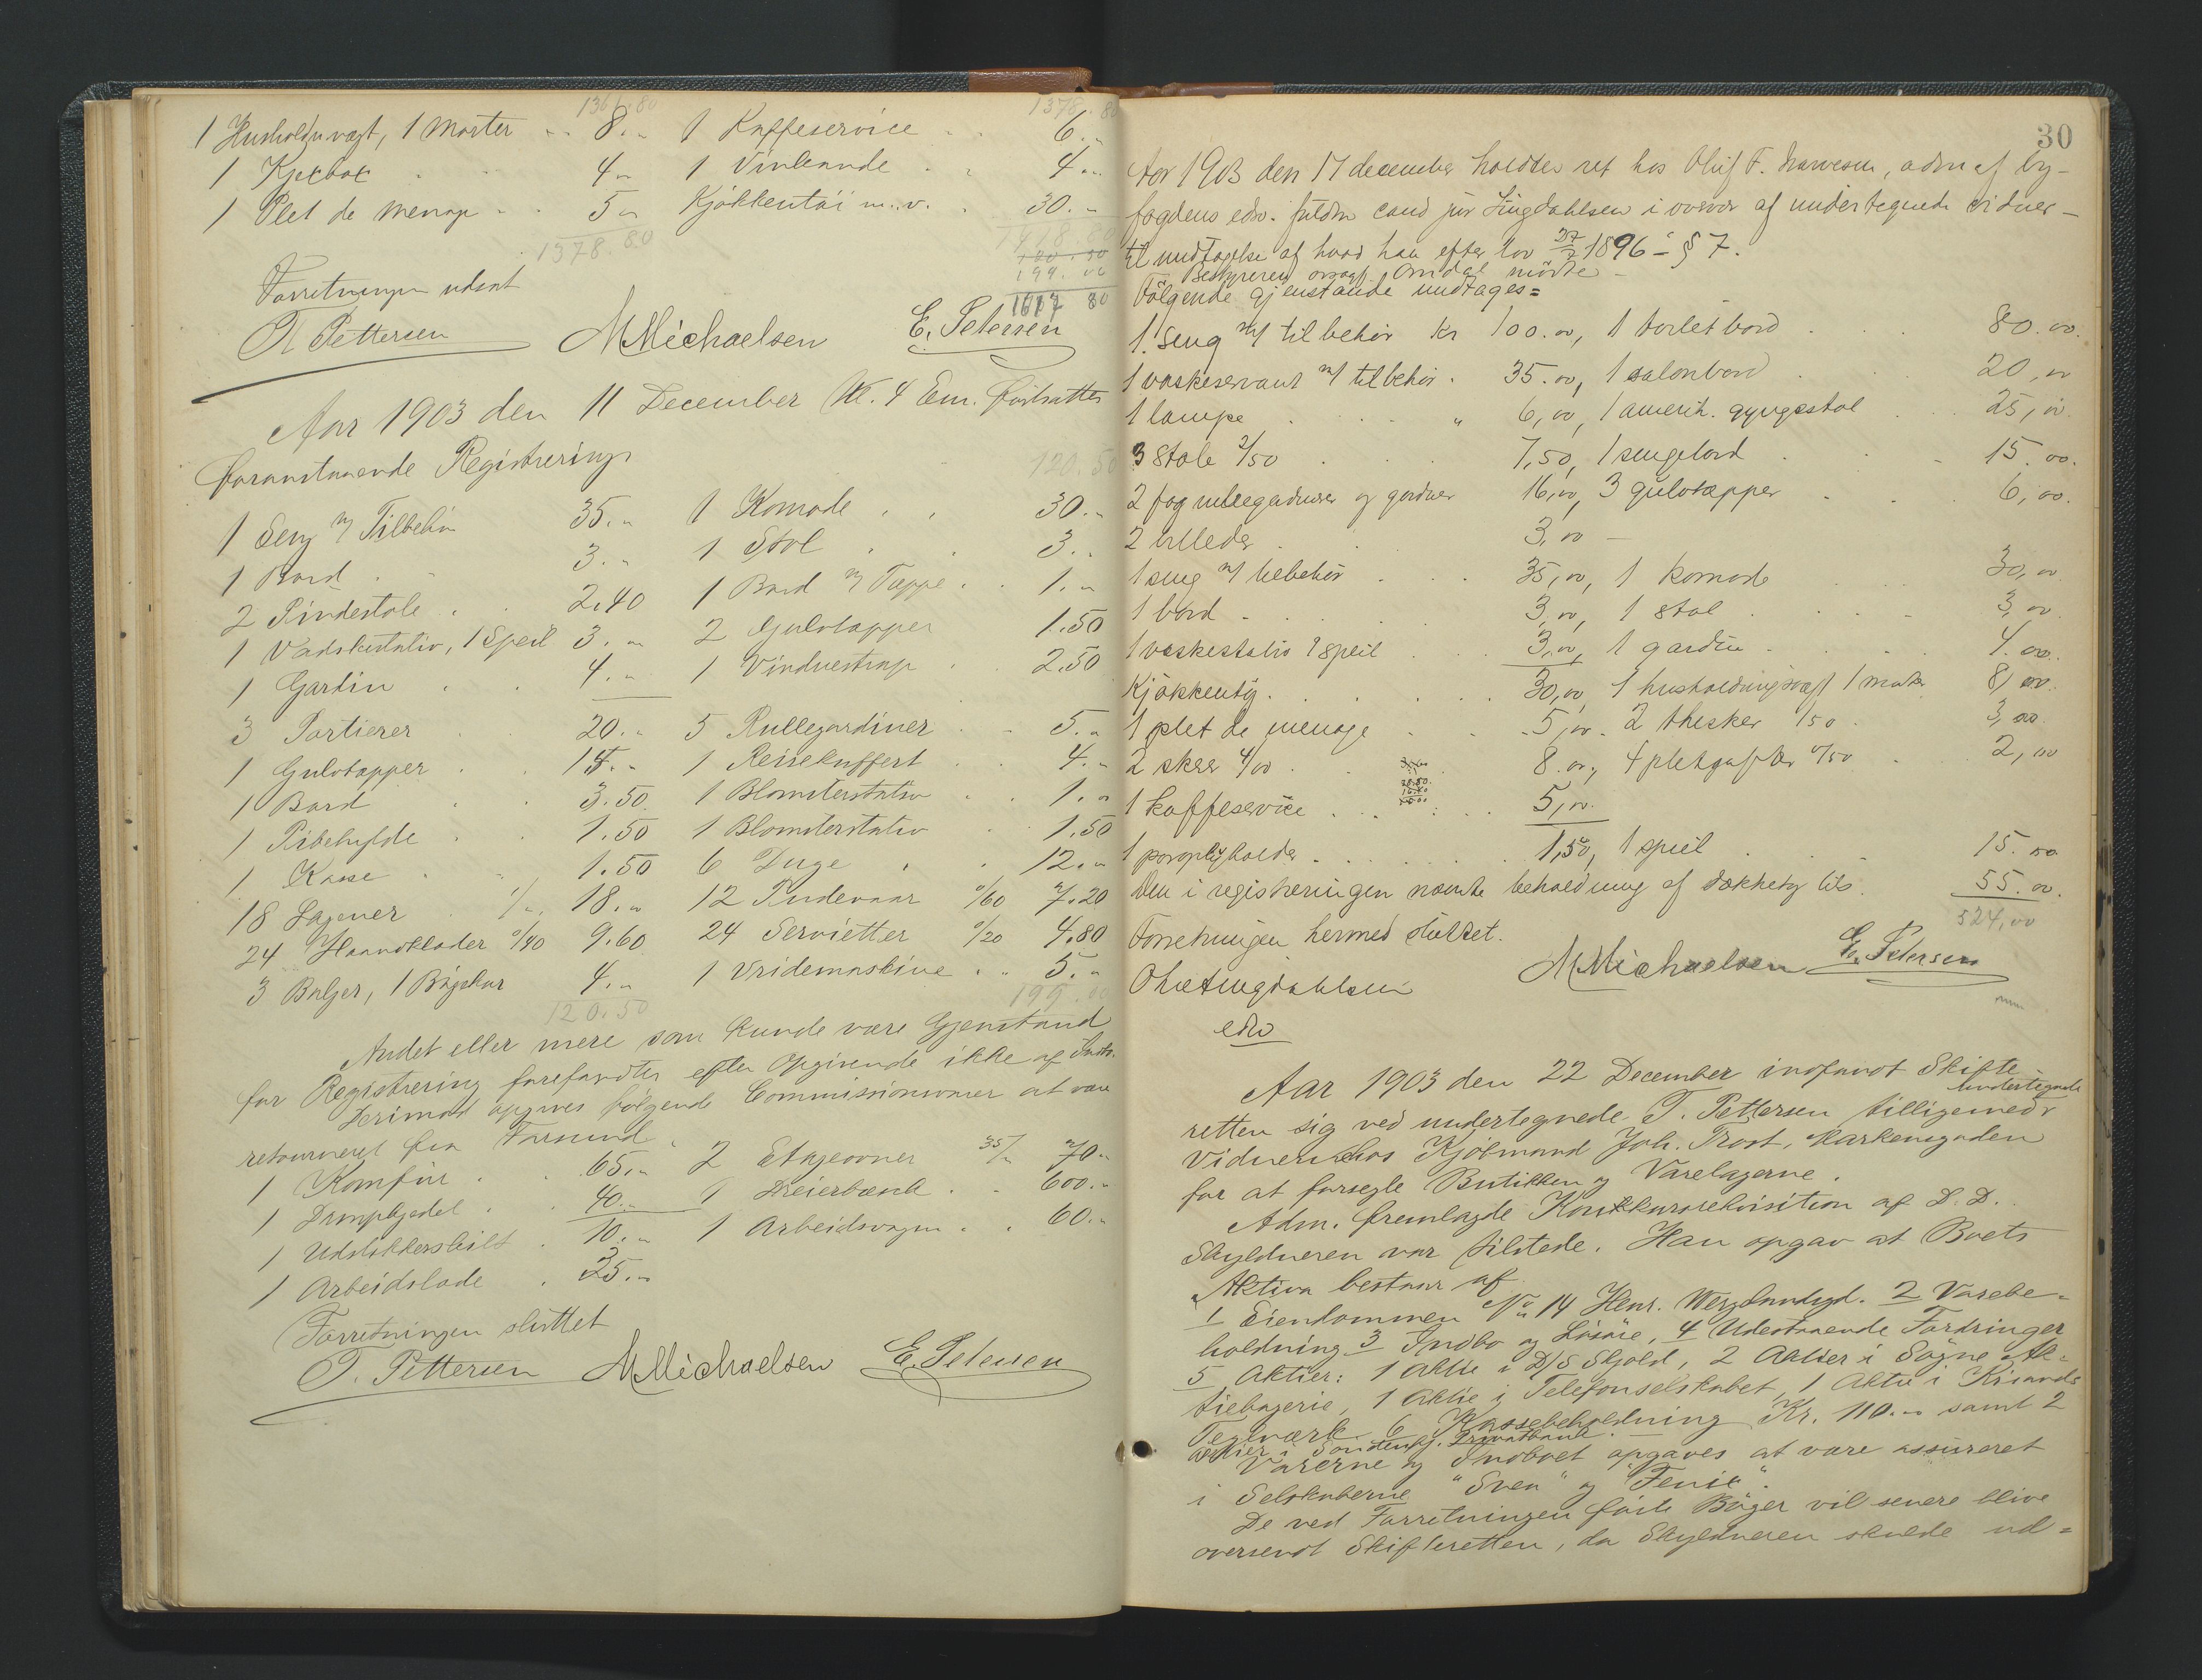 1361.80 1378.80
1 Husholdnvægt, 1 Morter 8." 1 Kaffeservice 6."
1 Kjexbox 4." 1 Vinkande 4."
1 Plet de menage 5." Kjøkkentøi m.v. 30."
1378.80 1418.80
120.50
199.00
Forretningen udsat 1617 80
T Pettersen MMichaelsen E. Petersen
Aar 1903 den 11 December Kl. 4 Em. fortsattes
foranstaaende Registrering 120.50
1 Seng m/ Tilbehør 35." 1 Komode 30."
1 Bord 3." 1 Stol 3."
2 Pindestole 2.40 1 Bord m/ Tæppe 1."
1 Vadskestativ, 1 Speil 3." 2 Gulvtæpper 1.50
1 Gardin 4." 1 Vinduestrap 2.50
3 Portierer 20." 5 Rullegardiner 5."
1 Gulvtæpper 15." 1 Reisekuffert 4."
1 Bord 3.50 1 Blomsterstativ 1."
1 Pibehylde 1.50 1 Blomsterstativ 1.50
1 Kasse 1.50 6 Duge 12."
18 Lagener 1/" 18." 12 Pudevaar "/60 7.20
24 Haandklæder "/40 9.60 24 Servietter "/20 4.80
3 Baljer, 1 Bøgekar 4." 1 Vridemaskine 5."
120.50 199.00
Andet eller mere som kunde være Gjenstand
for Registrering forefandtes efter Opgivende ikke af Indb.
Derimod opgives følgende Commissionsvarer at være
retourneret fra Farsund
1 Komfur 65." 2 Etageovner 35/" 70."
1 Dampkjedel 40." 1 Dreierbænk 600."
1 Udstikkerskilt 10." 1 Arbeidsvogn 60."
1 Arbeidslade 25."
Forretningen sluttet
T. Pettersen MMichaelsen E. Petersen
30
Aar 1903 den 17 december holdtes ret hos Oluf F. Narvesen, adm af by-
fogdens edsv. fuldm cand jur Lingdahlsen i overvær af undertegnede vidner –
til undtagelse af hvad han efter lov 27/7 1896 – § 7.
Bestyreren ovsagf. Omdal mødte –
Følgende gjenstande undtages =
1. Seng m/ tilbehør kr 100.00, 1 toiletbord 80.00.
1 vaskeservant m/ tilbehør 35.00, 1 salonbord 20,00
1 lampe " 6,00, 1 amerik. gyngestol 25,00.
3 Stole 2/50 7,50, 1 sengebord 15.00.
2 fag rullegardiner og gardiner 16,00, 3 gulvtæpper 6,00.
2 billeder 3,00 –
1 seng m/ tilbehør 35,00, 1 komode 30,00
1 bord 3,00, 1 stol 3,00
1 vaskestativ 1 speil 3,00, 1 gardin 4.00.
Kjøkkentøj 30,00, 1 husholdningsvægt 1 morter 8,00.
1 plet de menage 5,00. 2 theskeer 1.50 3,00
2 skeer 4/00 8.00, 4 pletgafler "/50 2,00
1 kaffeservice 5,00.
1 paraplyholder 1,50, 1 speil 15.00
Den i registreringen nævnte beholdning af dækketøj lits. 55.00.
524,00
Forretningen hermed sluttet.
MMichaelsen E. Petersen
edsv
Aar 1903 den 22 December indfandt Skifte-
retten sig ved undertegnede T. Pettersen tilligemed undertegnede
Vidner hos Kjøbmand Joh. Trost, Markensgaden
for at forsegle Butikken og Varelagerne.
Adm. fremlagde Konkursrekvisition af D. D.
Skyldneren var tilstede. Han opgav at Boets
Aktiva bestaar af
1 Eiendommen No 14 Henr. Wergelandsgd. 2 Varebe-
holdning 3 Indbo og Løsøre, 4 Udestaaende Fordringer
5 Aktier: 1 Aktie i D/S Skjold, 2 Aktier i Søgne Ak-
tiebageri, 1 Aktie i Telefonselskabet, 1 Aktie i Krisands
Teglværk 6 Kassebeholdning Kr. 110." samt 2
Aktier i Søndenfj. Privatbank.
Varerne og Indboet opgaves at være assureret
i Selskaberne "Svea" og "Fenix".
De ved Forretningen førte Bøger vil senere blive
oversendt Skifteretten, da Skyldneren skulde ud-